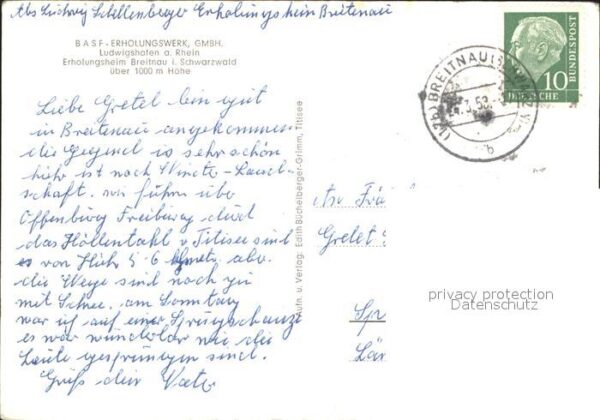 Abs Ludwig Schellenberger Erholungsheim Breitnau
BASF-ERHOLUNGSWERK, GMBH.
Ludwigshafen a. Rhein
Erholungsheim Breitnau i. Schwarzwald
über 1000 m Höhe
Liebe Gretel bin gut
in Breitenau angekommen
die Gegend is sehr schön
hihr ist noch Winter-Land-
schaft. wir fuhren über
Offenburg Freiburg durch
das Höllentahl v Titisee sind
es von Hihr 5-6 abr.
die Wege sind noch zu
mit Schnee. am Sonntag
war ich auf einer Sprungschanze
es war wunderbar wie die
Leute gesprungen sind.
Gruß dein Vater
Aufn. u. Verlag: Edith Büchelberger-Grimm, Titisee
BREITNAU
58
b
10
DEUTSCHE
BUNDESPOST
An Frä
Gretel
Sp
Län
privacy protection
Datenschutz